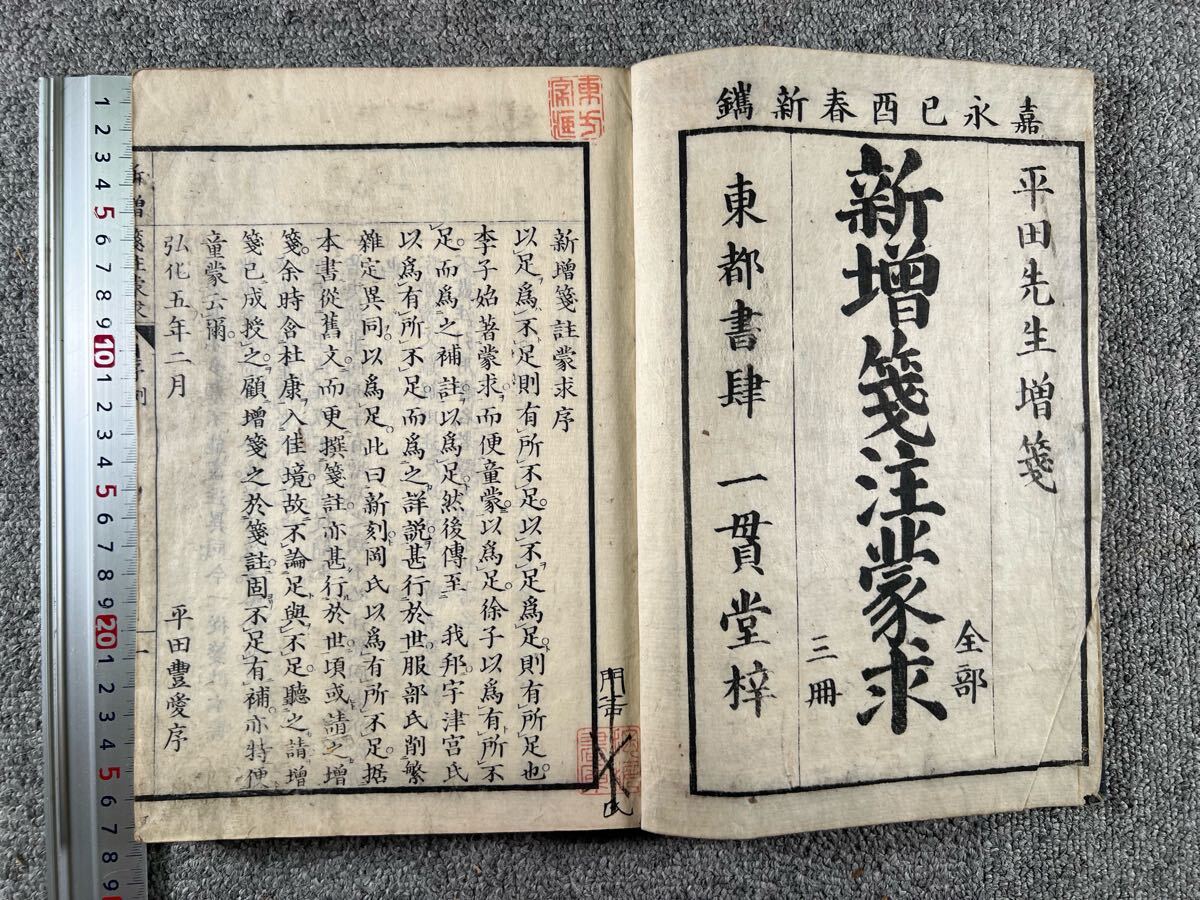 嘉永己酉春新鐫
平田先生增箋
新增箋注蒙求
全部
三冊
東都書肆 一貫堂梓
新增箋註蒙求序
以足爲不足則有所不足以不足爲足則有所足也
李子始著蒙求而便童蒙以爲足徐子以爲有所不
足而爲之補註以爲足然後傳至 我邦宇津宮氏
以爲有所不足而爲之詳説甚行於世服部氏削繁
雜定異同以爲足此曰新刻岡氏以爲有所不足據
本書從舊文而更撰箋註亦甚行於世頃或請之增
箋余時含杜康入佳境故不論足與不足聽之請增
箋已成授之顧增箋之於箋註固不足有補亦特便
童蒙云爾
弘化五年二月
平田豐愛序
1 2 3 4 5 6 7 8 9 10 1 2 3 4 5 6 7 8 9 20 1 2 3 4 5 6 7 8 9